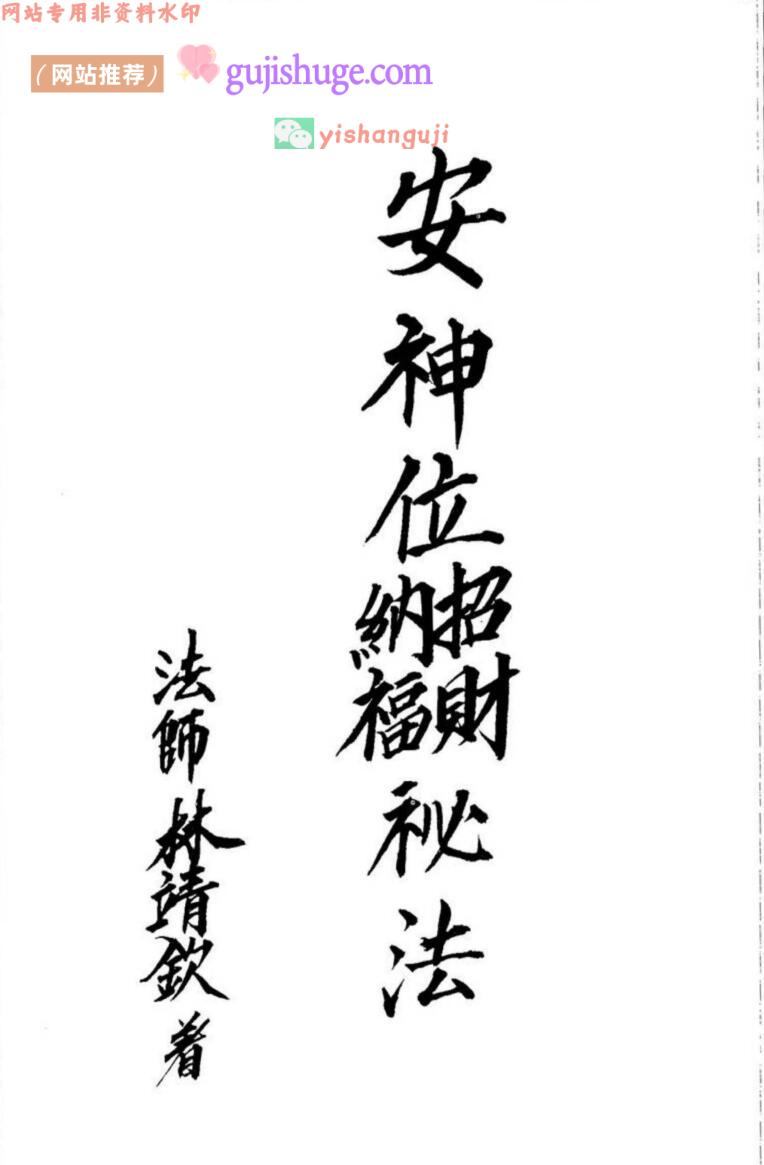 网站专用非资料水印
（网站推荐） gujishuge.com
yishanguji
安神位招財納福祕法
法師林靖欽着